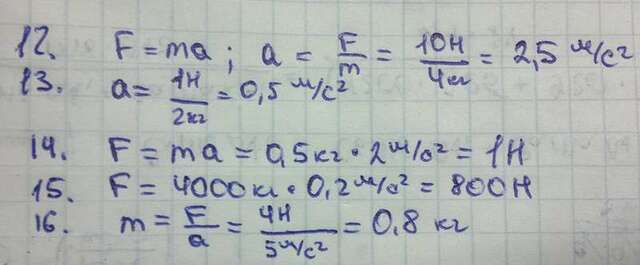 12. F = ma ; a = F/m = 10Н/4кг = 2,5 м/с²
13. a = 1Н/2кг = 0,5 м/с²
14. F = ma = 0,5 кг · 2 м/с² = 1Н
15. F = 4000кг · 0,2 м/с² = 800Н
16. m = F/a = 4Н/5м/с² = 0,8 кг